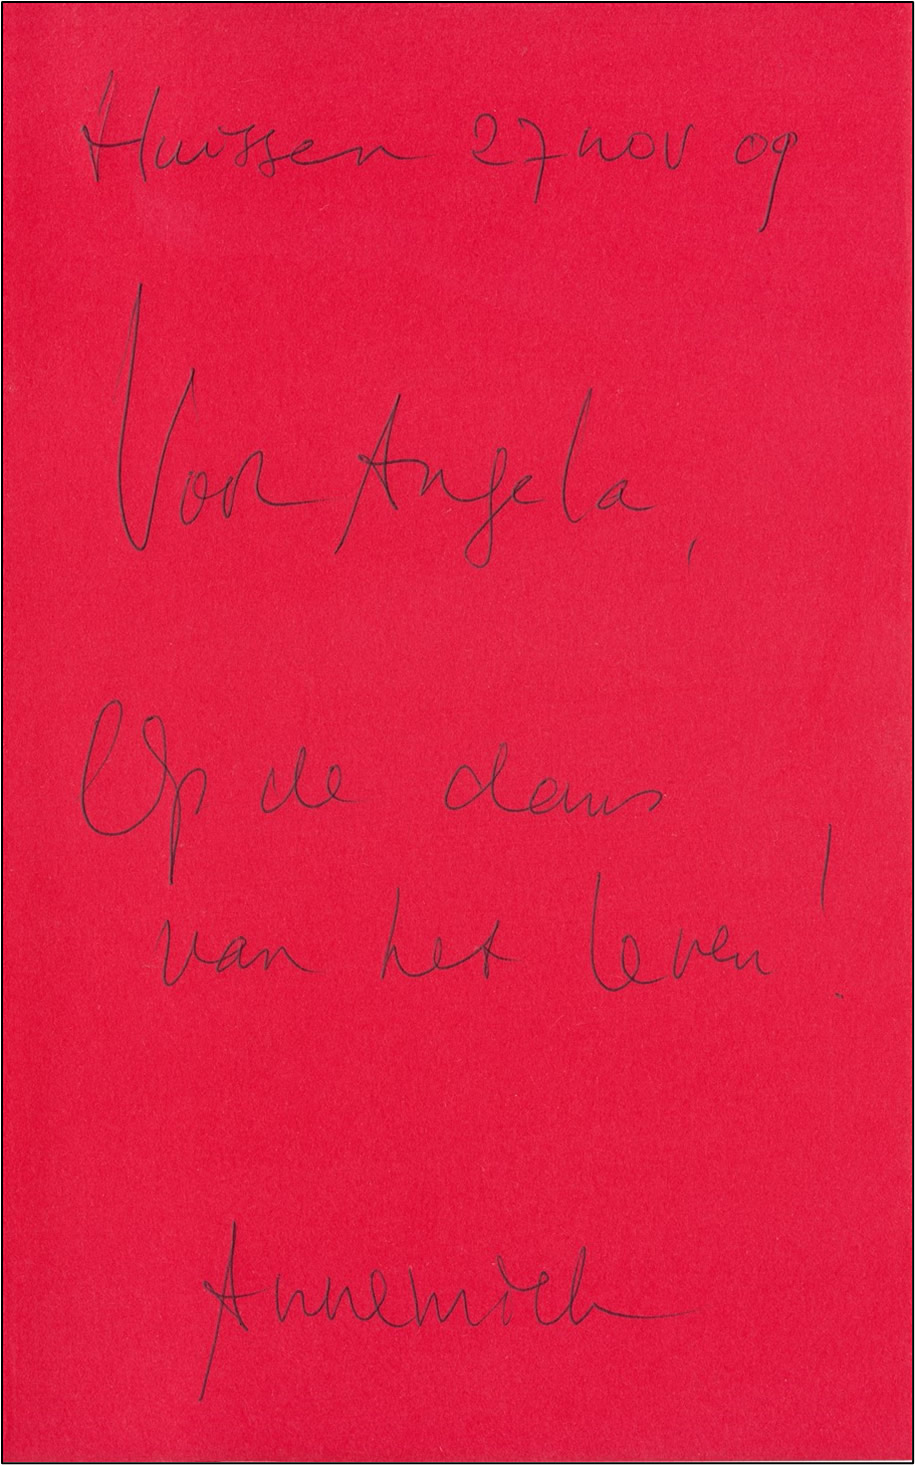 Huissen 27 nov 09
Voor Angela,
Op de dans
van het leven!
Annemiek